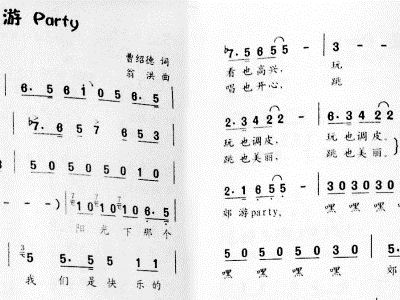 游 Party
曹绍德 词
翁 洪 曲
6. 5 6 1 0 5 6. 5
♭7. 6 5 7 6 5 3
5 0 5 0 5 0 1 0
- - ) | 1 0 1 0 1 0 1 0 6. 5
阳 光 下 那 个
5 5. 5 5 1 1
我 们 是 快 乐 的
♭7. 5 6 5 5 | 3 -
看 也 高兴, 玩
唱 也 开心, 跳
2. 3 4 2 2 - | 6. 3 4 2 2
玩 也 调皮, 玩 也 调皮。
跳 也 美丽, 跳 也 美丽。
2. 1 6 5 5 - | 3 0 3 0 3 0 3 0
郊 游 party, 嘿 嘿 嘿 嘿
5 0 5 0 5 0 3 0 5 -
嘿 嘿 嘿 嘿 嘿